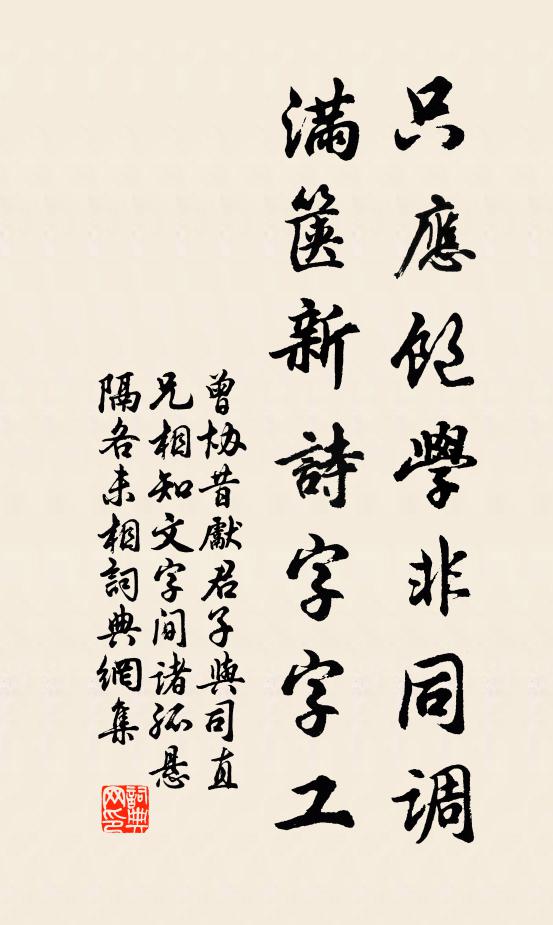 只應飽學非同調
滿篋新詩字字工
曾協昔獻君子與司直
兄相知文字間諸孤懸
隔各未相詞典網集
詞典网印